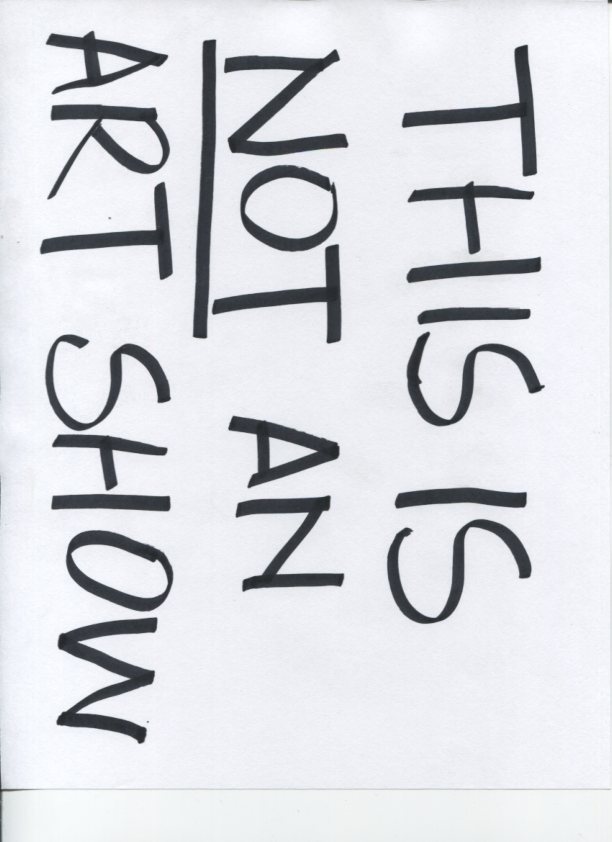 THIS IS
NOT AN
ART SHOW